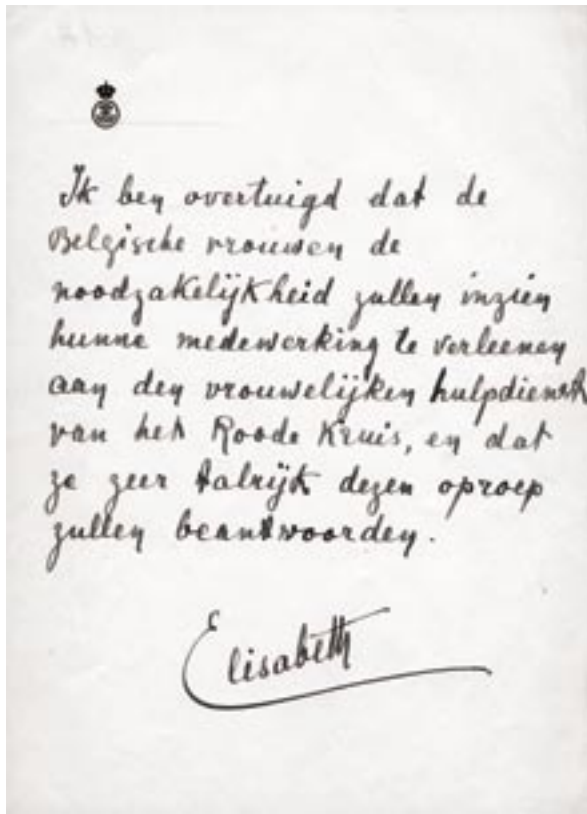 Ik ben overtuigd dat de
Belgische vrouwen de
noodzakelijkheid zullen inzien
hunne medewerking te verleenen
aan den vrouwelijken hulpdienst
van het Roode Kruis, en dat
ze zeer talrijk dezen oproep
zullen beantwoorden.
Elisabeth